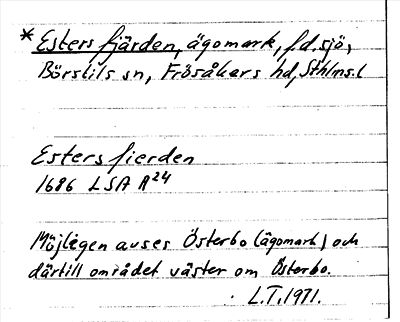 * Esters fjärden, ägomark, f.d. sjö,
Börstils sn, Frösåkers hd, Sthlms. l
Estersfierden
1686 LSA A24
Möjligen avses Österbo (ägomark) och
därtill området väster om Österbo.
L.T. 1971.